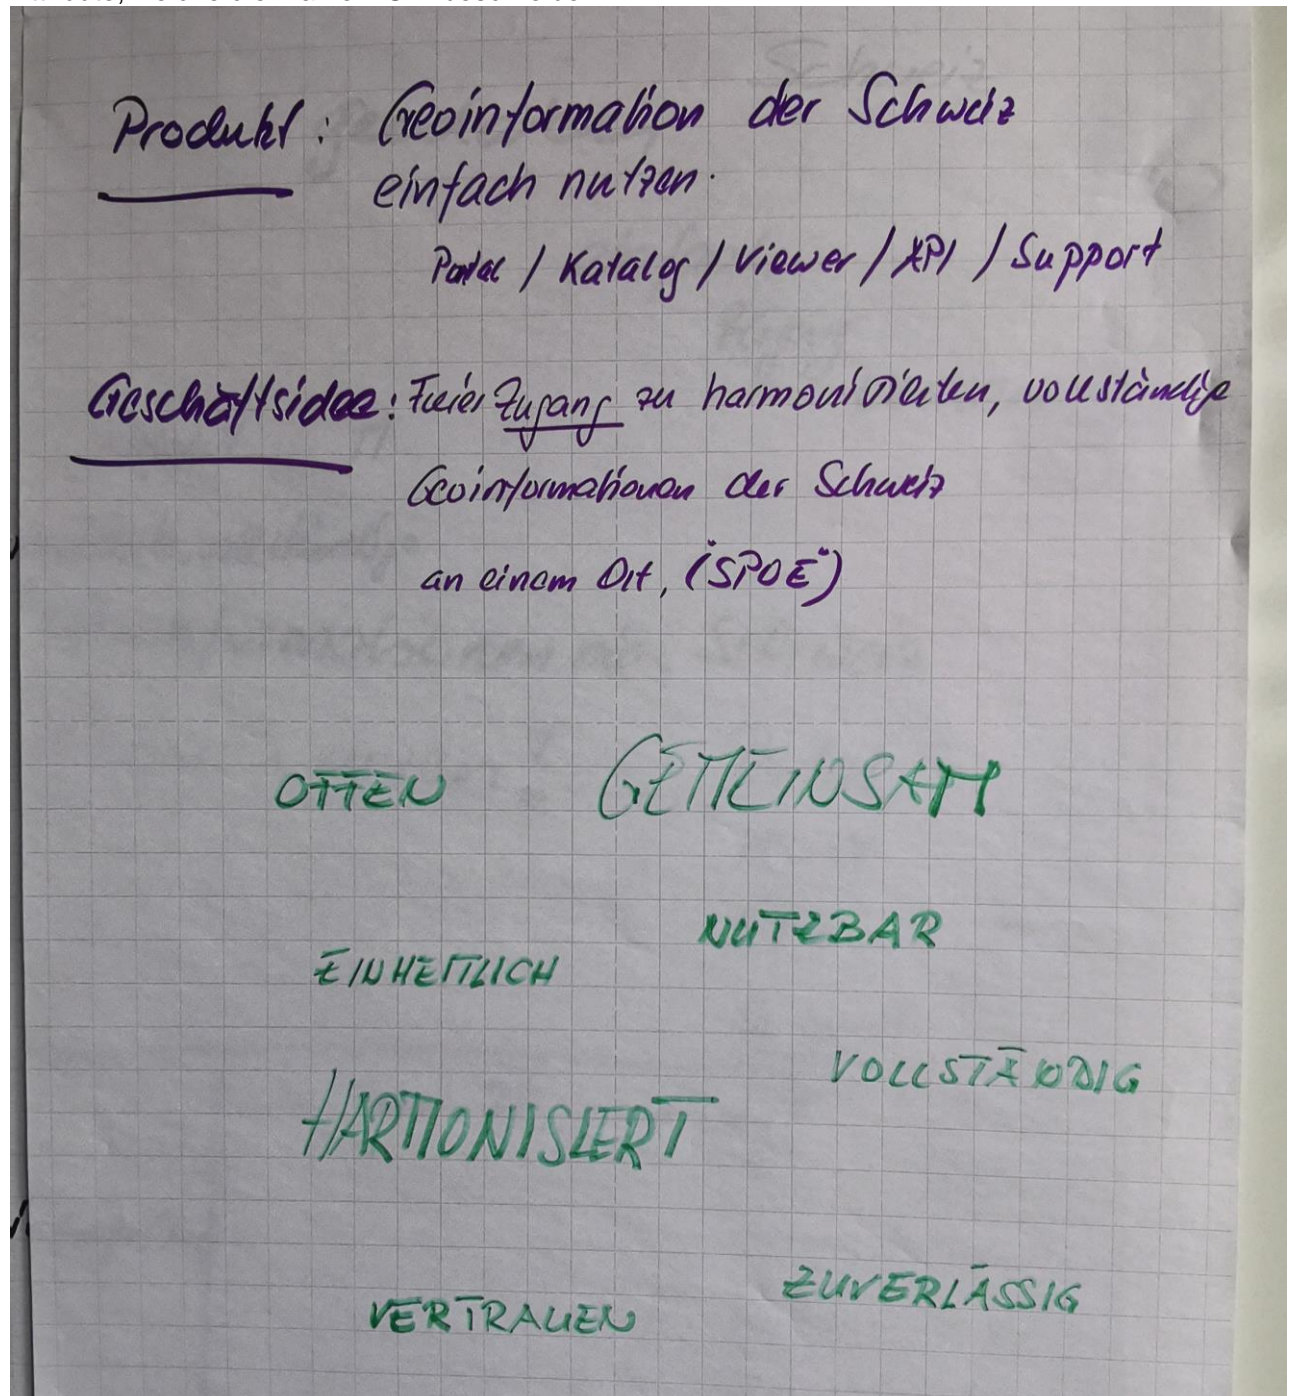 Produkt: Geoinformation der Schweiz
einfach nutzen.
Portal / Katalog / Viewer / API / Support
Geschäftsidee: Freier Zugang zu harmonisierten, vollständige
Geoinformationen der Schweiz
an einem Ort, ("SPOE")
OFFEN GEMEINSAM
NUTZBAR
EINHEITLICH
VOLLSTÄNDIG
HARMONISIERT
ZUVERLÄSSIG
VERTRAUEN